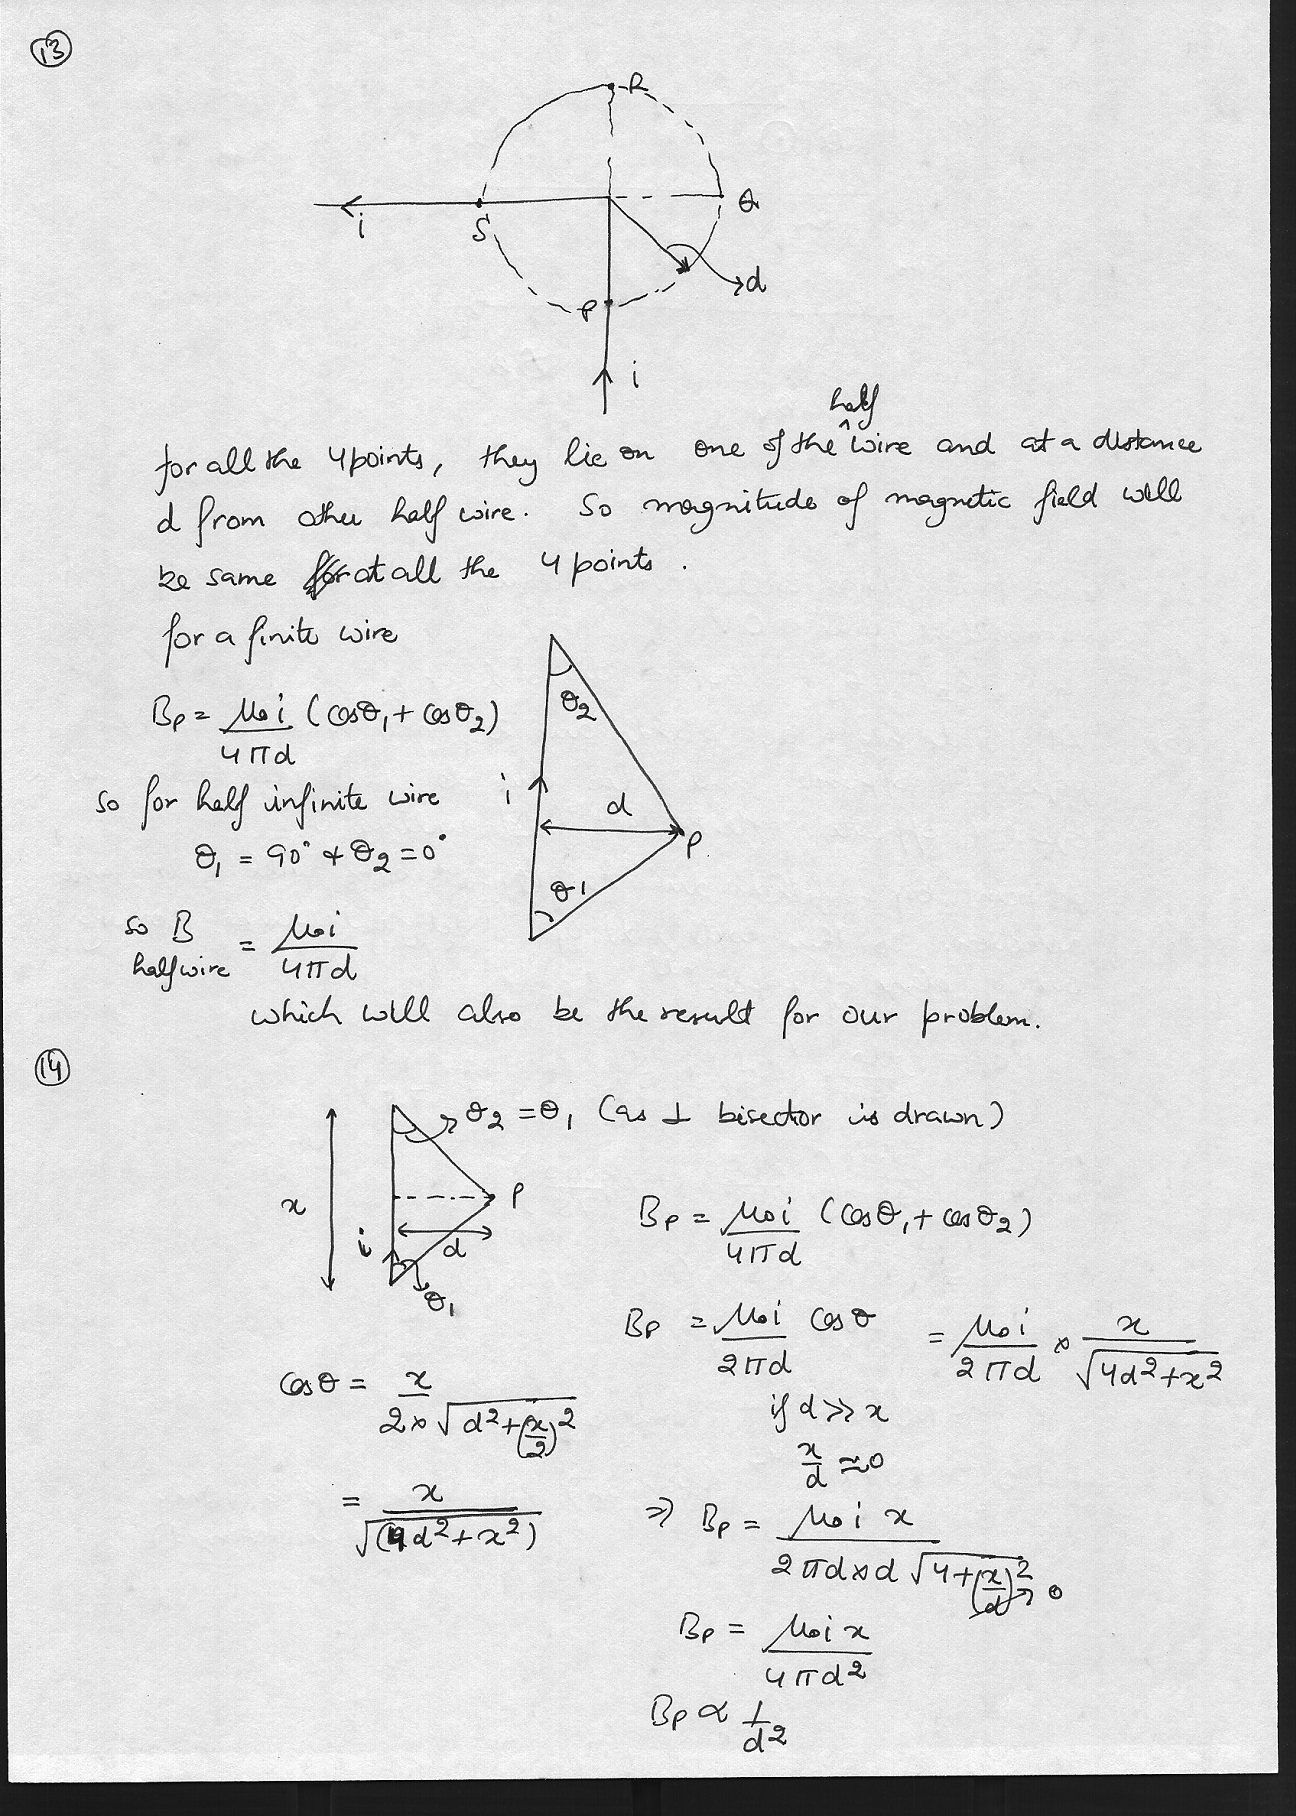 13
R
S
Q
i
d
P
i
half
for all the 4 points, they lie on one of the ^ wire and at a distance
d from other half wire. So magnitude of magnetic field will
be same at all the 4 points.
for a finite wire
Bp = μ₀i/4πd (cosθ₁ + cosθ₂)
θ₂
i
d
P.
θ1
so for half infinite wire
θ₁ = 90° & θ₂ = 0°
so B halfwire = μ₀i/4πd
which will also be the result for our problem.
14
θ₂ = θ₁ (as ⊥ bisector is drawn)
x
P
i
d
θ₁
Bp = μ₀i/4πd (cosθ₁ + cosθ₂)
Bp = μ₀i/2πd cosθ = μ₀i/2πd × x/√(4d²+x²)
cosθ = x/2×√(d²+(x/2)²)
= x/√(4d²+x²)
if d >> x
x/d ≈ 0
⇒ Bp = μ₀ i x/2πd×d √(4+(x/d)²) → 0
Bp = μ₀ i x/4πd²
Bp ∝ 1/d²